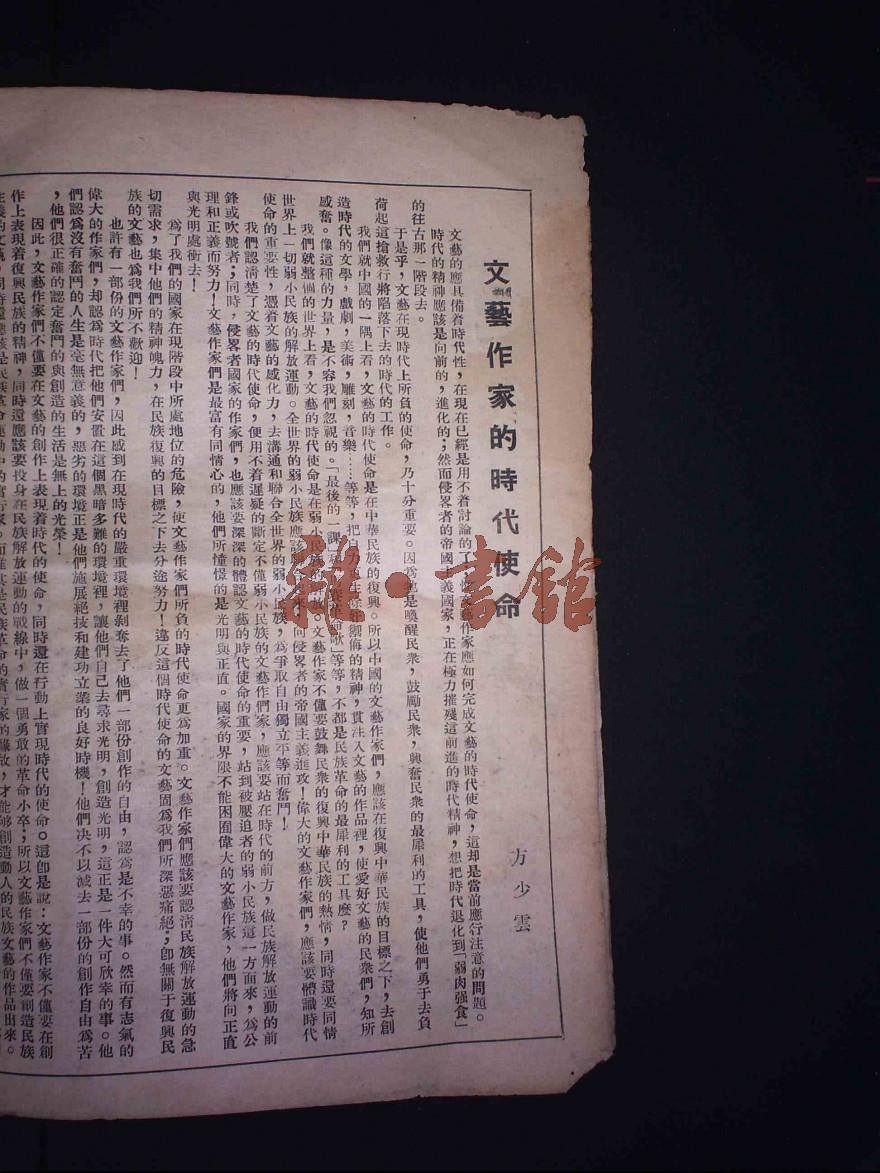 文藝作家的時代使命
方少雲
文藝的應具備着時代性，在現在已經是用不着討論的了，惟文藝作家應如何完成文藝的時代使命，這却是當前應行注意的問題。
時代的精神應該是向前的，進化的；然而侵畧者的帝國主義國家，正在極力摧殘這前進的時代精神，想把時代退化到「弱肉强食」
的往古那一階段去。
于是乎，文藝在現時代上所負的使命，乃十分重要。因爲牠是喚醒民衆，鼓勵民衆，興奮民衆的最犀利的工具，使他們勇于去負
荷起這搶救行將陷落下去的時代的工作。
我們就中國的一隅上看，文藝的時代使命是在中華民族的復興。所以中國的文藝作家們，應該在復興中華民族的目標之下，去創
造時代的文學，戲劇，美術，雕刻，音樂……等等，把自力更生的精神，貫注入文藝的作品裡，使愛好文藝的民衆們，知所
感奮。像這種的力量，是不容我們忽視的。「最後的一課」革命歌」等等，不都是民族革命的最犀利的工具麽？
我們就整個的世界上看，文藝的時代使命是在弱小民族的解放。文藝作家不僅要鼓舞民衆的復興中華民族的熱情，同時還要同情
世界上一切弱小民族的解放運動。全世界的弱小民族應該向侵畧者的帝國主義進攻！偉大的文藝作家們，應該要體識時代
使命的重要性，憑着文藝的感化力，去溝通和聯合全世界的弱小民族，爲爭取自由獨立平等而奮鬥！
我們認淸楚了文藝的時代使命，便用不着遲疑的斷定不僅弱小民族的文藝作們家，應該要站在時代的前方，做民族解放運動的前
鋒或吹號者；同時，侵畧者國家的作家們，也應該要深深的體認文藝的時代使命的重要，站到被壓迫者的弱小民族這一方面來，爲公
理和正義而努力！文藝作家們是最富有同情心的，他們所憧憬的是光明與正直。國家的界限不能囿偉大的文藝作家，他們將向正直
與光明處衝去！
爲了我們的國家在現階段中所處地位的危險，使文藝作家們所負的時代使命更爲加重。文藝作家們應該要認淸民族解放運動的急
切需求，集中他們的精神魄力，在民族復興的目標之下去分途努力！違反這個時代使命的文藝固爲我們所深惡痛絕；卽無關于復興民
族的文藝也爲我們所不歡迎！
也許有一部份的文藝作家們，因此感到在現時代的嚴重環境裡剝奪去了他們一部份創作的自由，認爲是不幸的事。然而有志氣的
偉大的作家們，却認爲時代把他們安置在這個黑暗多難的環境裡，讓他們自己去尋求光明，創造光明，這正是一件大可欣幸的事。他
們認爲沒有奮鬥的人生是毫無意義的，惡劣的環境正是他們施展絕技和建功立業的良好時機！他們決不以減去一部份的創作自由爲苦
，他們很正確的認定奮鬥的與創造的生活是無上的光榮！
因此，文藝作家們不僅要在文藝的創作上表現着時代的使命，同時還在行動上實現時代的使命。這卽是說：文藝作家不僅要在創
作上表現着復興民族的精神，同時還應該要投身在民族解放運動的戰線中，做一個勇敢的革命小卒；所以文藝作家們不僅要創造民族